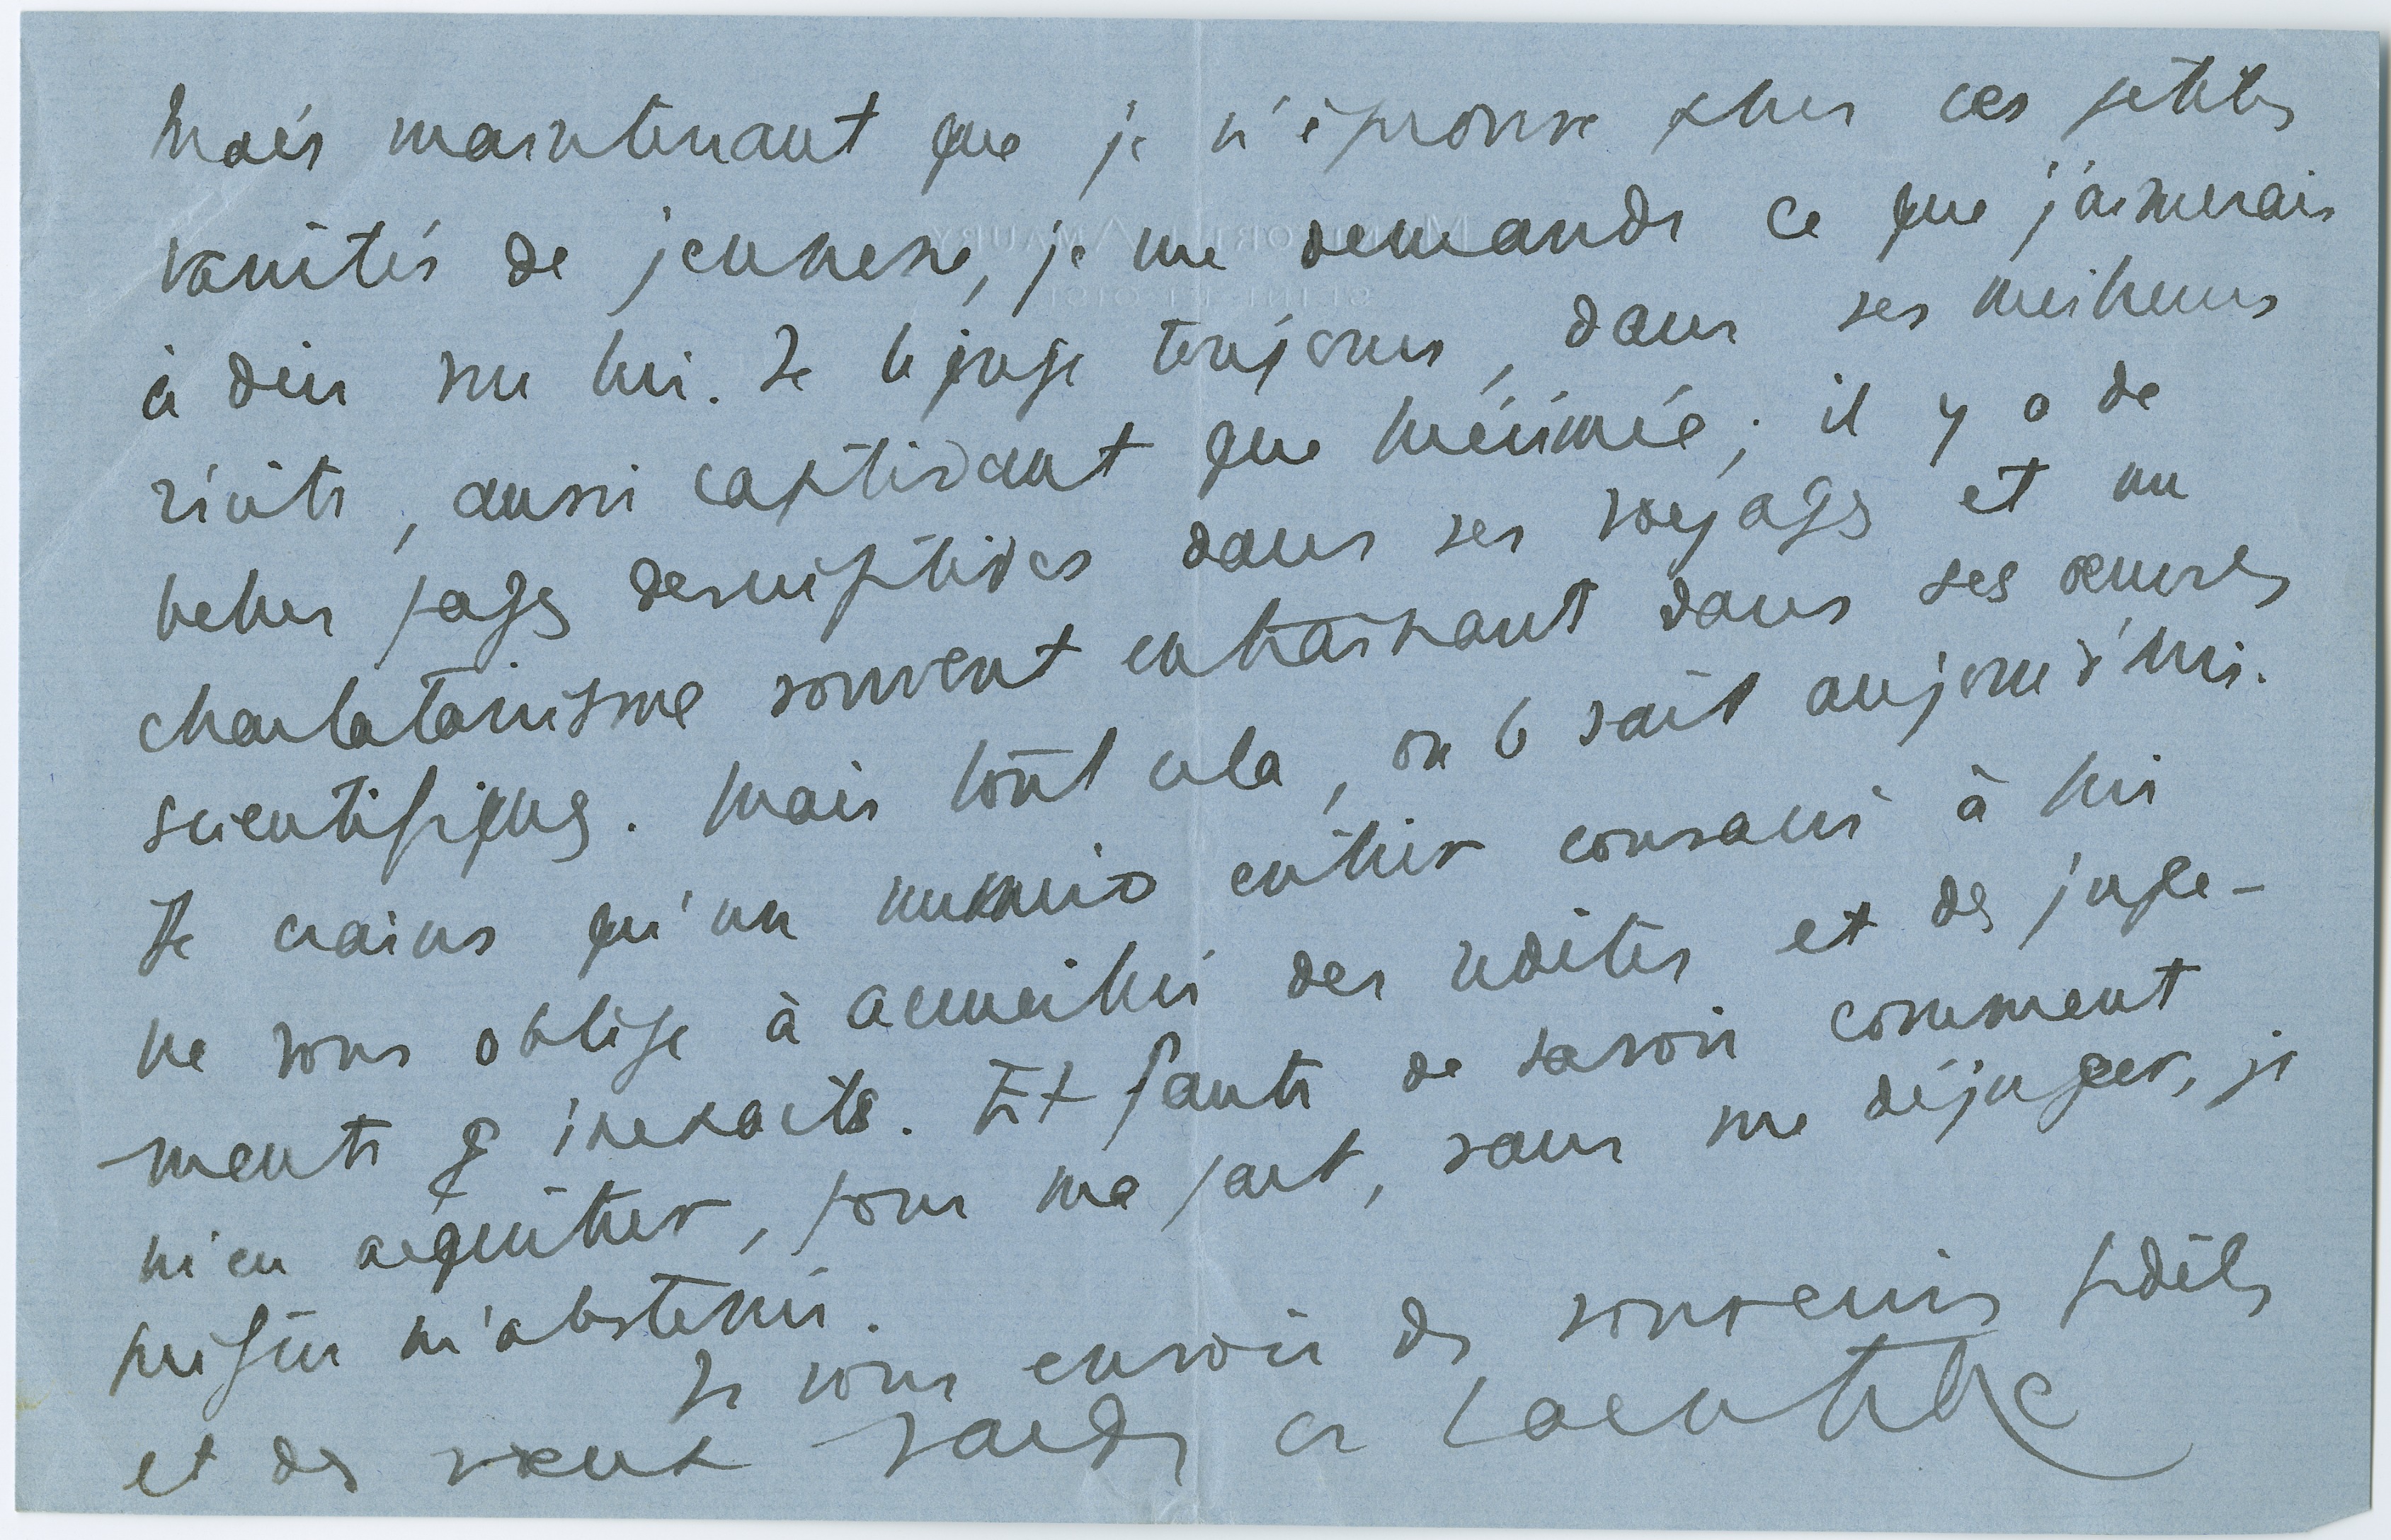 Mais maintenant que je n'éprouve plus ces petites
vanités de jeunesse, je me demande ce que j'aimerais
à dire sur lui. Je le juge toujours, dans ses meilleurs
récits, aussi captivant que Mérimée ; il y a de
belles pages descriptives dans ses voyages et un
charlatanisme souvent entraînant dans ses œuvres
scientifiques. Mais tout cela, on le sait aujourd'hui.
Je crains qu'un numéro entier consacré à lui
ne vous oblige à accueillir des redites et des juge-
ments inexacts. Et faute de savoir comment
m'en acquitter, pour ma part, sans me déjuger, je
préfère m'abstenir.
Je vous envoie des souvenirs fidèles
et des vœux
MONTFORT L'AMAURY
SEINE-ET-OISE